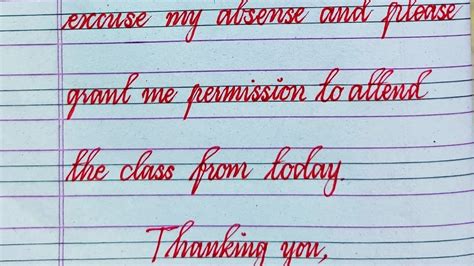 excuse my absense and please
grant me permission to attend
the class from today.
Thanking you,